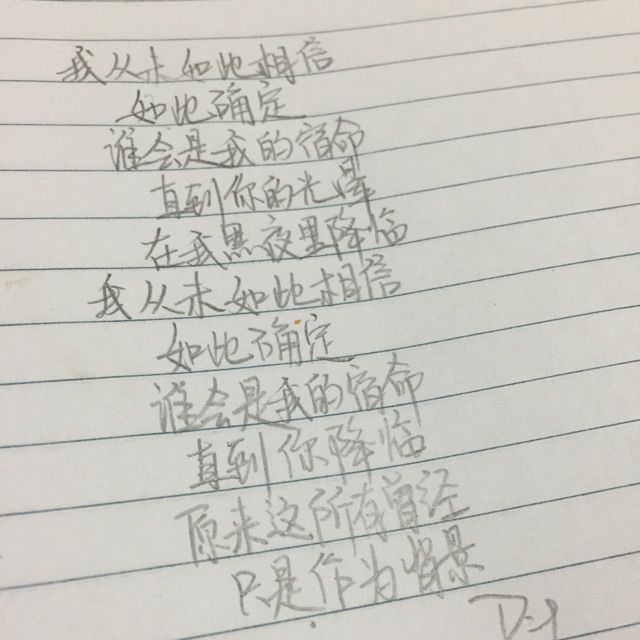 我从未如此相信
如此确定
谁会是我的宿命
直到你的光晕
在我黑夜里降临
我从未如此相信
如此确定
谁会是我的宿命
直到你降临
原来这所有曾经
只是作为背景